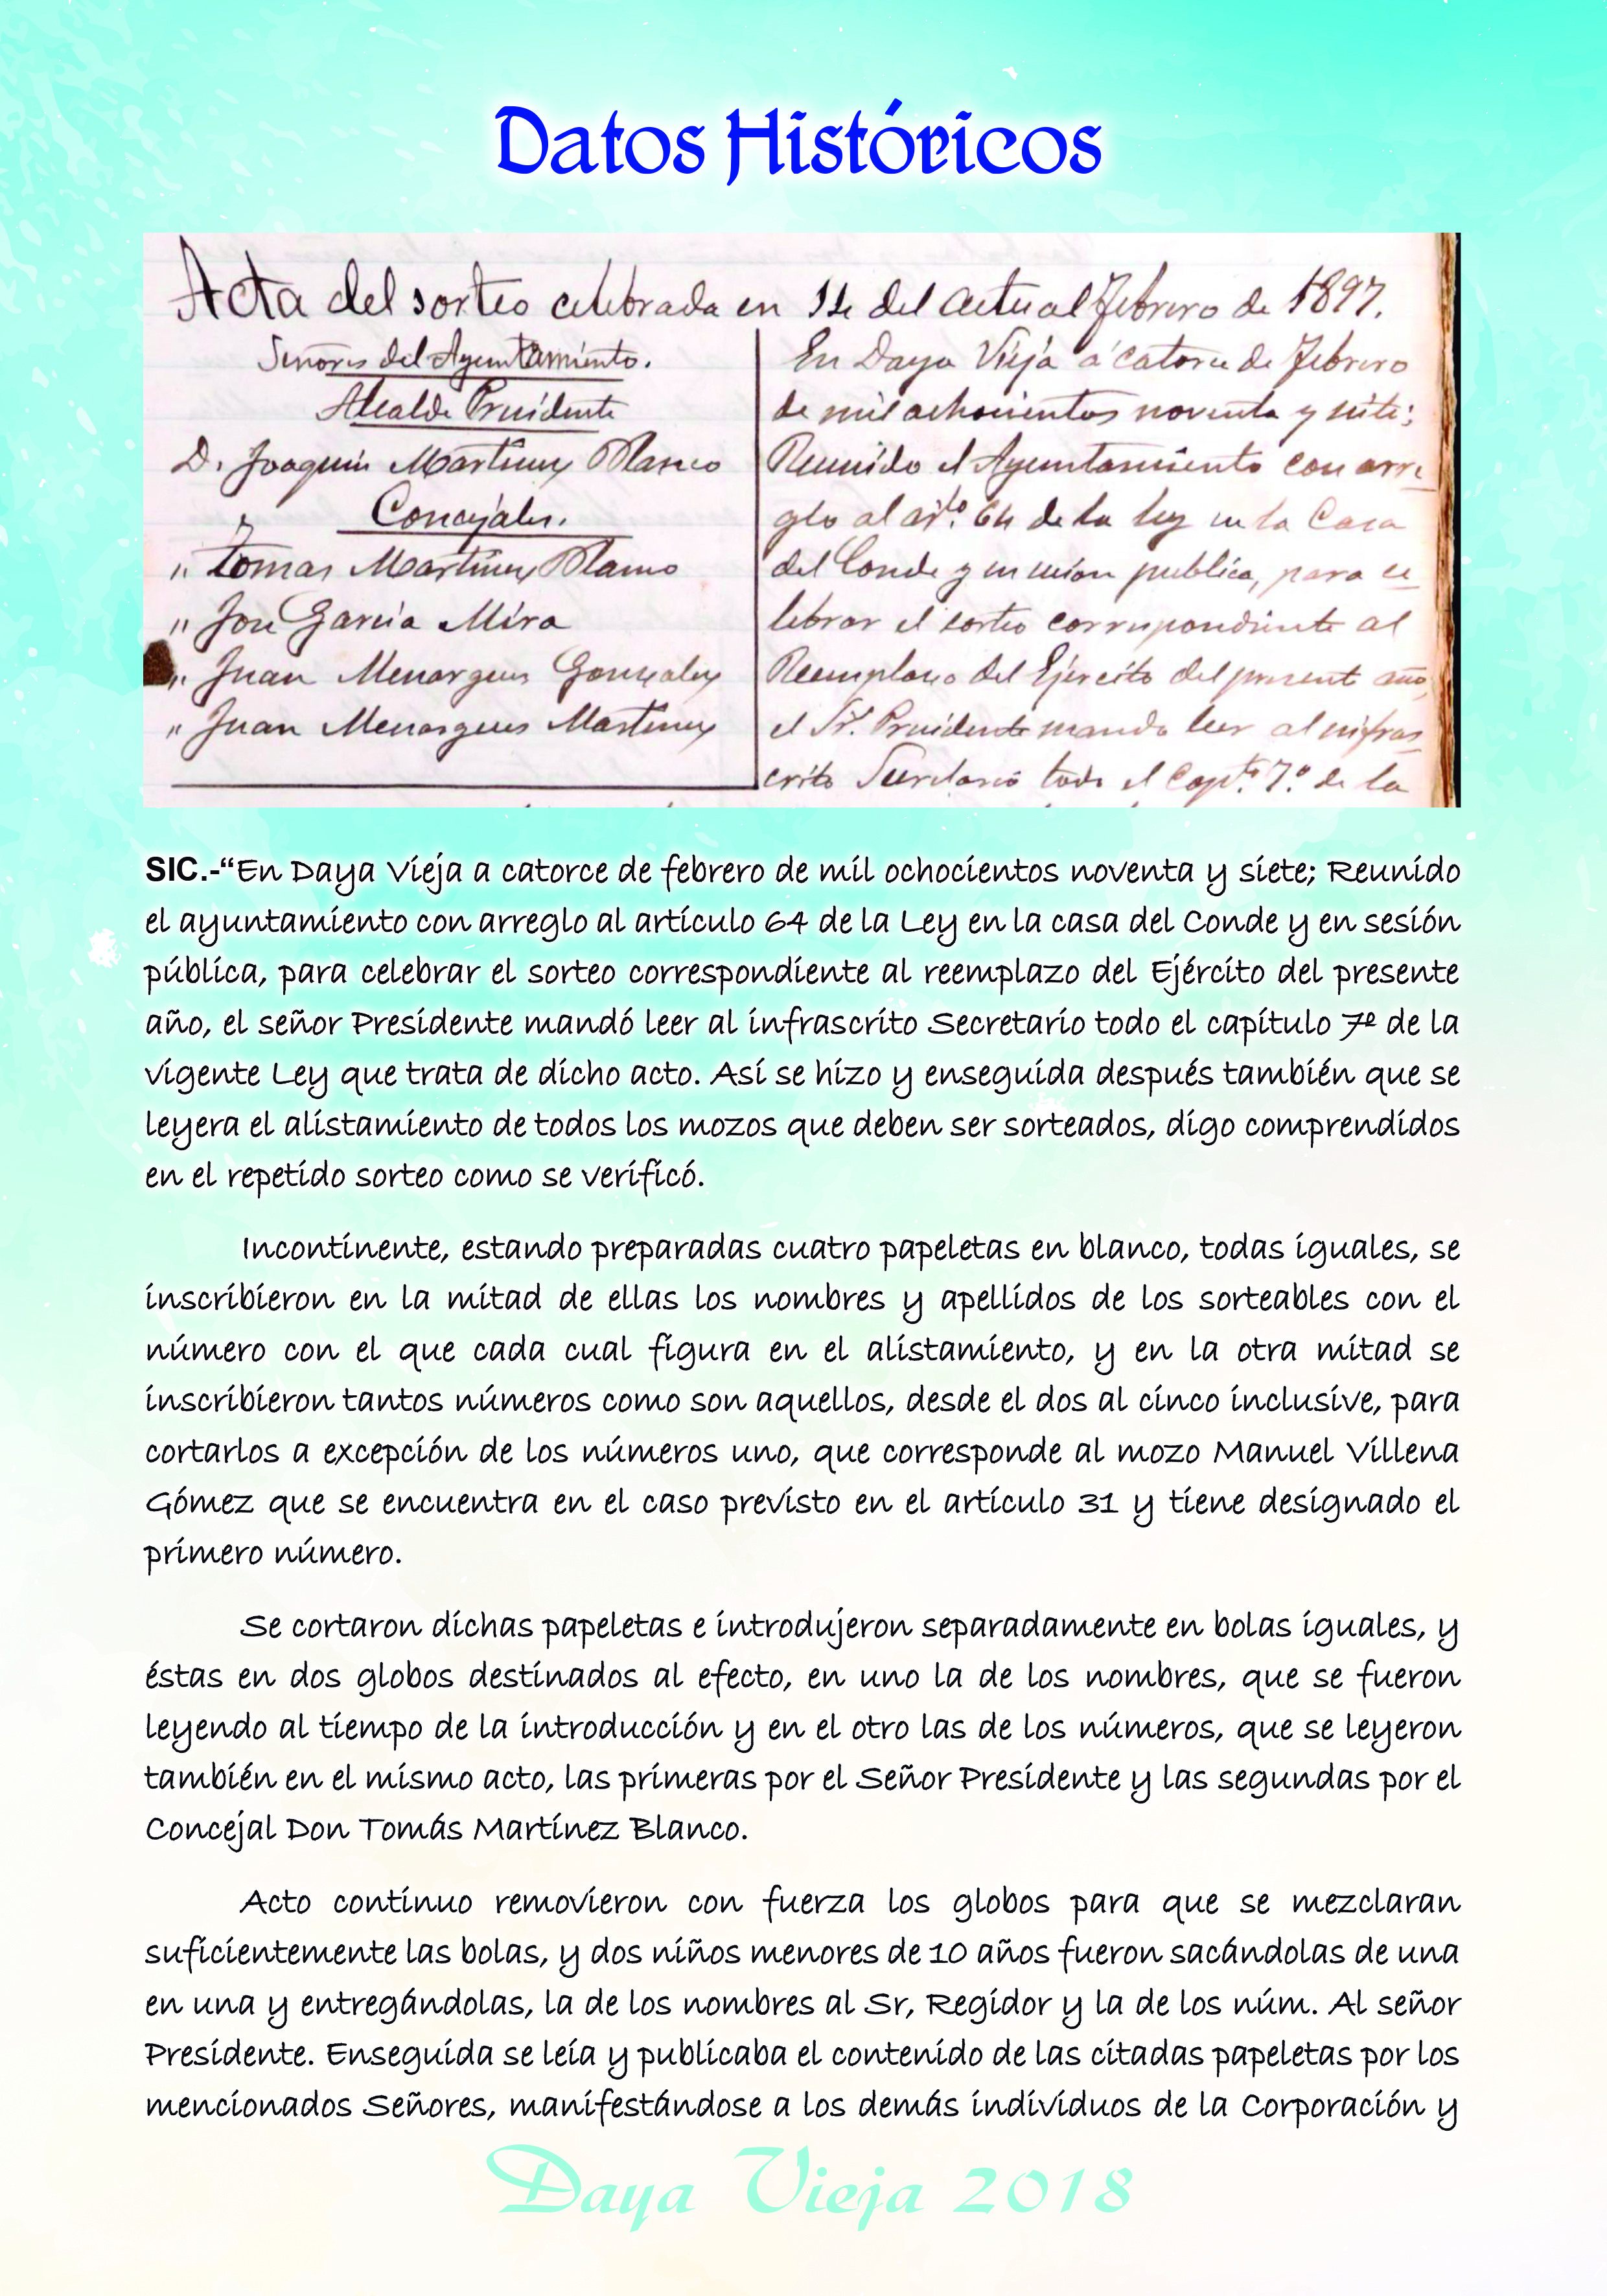 Datos Históricos
Acta del sorteo celebrada en 14 del actual Febrero de 1897.
Señores del Ayuntamiento.
Alcalde Presidente
D. Joaquin Martinez Blanco
Concejales.
" Tomas Martinez Blanco
" Jose Garcia Mira
" Juan Menargues Gonzalez
" Juan Menargues Martinez
En Daya Vieja á catorce de Febrero
de mil ochocientos noventa y siete;
Reunido el Ayuntamiento con arre
glo al artlo. 64 de la ley en la Casa
del Conde y en sesion publica, para ce
lebrar el sorteo correspondiente al
Reemplazo del Ejercito del presente año,
el Sr. Presidente mando leer al infras
crito Secretario todo el Capto. 7º de la
SIC.-“En Daya Vieja a catorce de febrero de mil ochocientos noventa y siete; Reunido
el ayuntamiento con arreglo al artículo 64 de la Ley en la casa del Conde y en sesión
pública, para celebrar el sorteo correspondiente al reemplazo del Ejército del presente
año, el señor Presidente mandó leer al infrascrito Secretario todo el capítulo 7º de la
vigente Ley que trata de dicho acto. Así se hizo y enseguida después también que se
leyera el alistamiento de todos los mozos que deben ser sorteados, digo comprendidos
en el repetido sorteo como se verificó.
Incontinente, estando preparadas cuatro papeletas en blanco, todas iguales, se
inscribieron en la mitad de ellas los nombres y apellidos de los sorteables con el
número con el que cada cual figura en el alistamiento, y en la otra mitad se
inscribieron tantos números como son aquellos, desde el dos al cinco inclusive, para
cortarlos a excepción de los números uno, que corresponde al mozo Manuel Villena
Gómez que se encuentra en el caso previsto en el artículo 31 y tiene designado el
primero número.
Se cortaron dichas papeletas e introdujeron separadamente en bolas iguales, y
éstas en dos globos destinados al efecto, en uno la de los nombres, que se fueron
leyendo al tiempo de la introducción y en el otro las de los números, que se leyeron
también en el mismo acto, las primeras por el Señor Presidente y las segundas por el
Concejal Don Tomás Martínez Blanco.
Acto continuo removieron con fuerza los globos para que se mezclaran
suficientemente las bolas, y dos niños menores de 10 años fueron sacándolas de una
en una y entregándolas, la de los nombres al Sr, Regidor y la de los núm. Al señor
Presidente. Enseguida se leía y publicaba el contenido de las citadas papeletas por los
mencionados Señores, manifestándose a los demás individuos de la Corporación y
Daya Vieja 2018